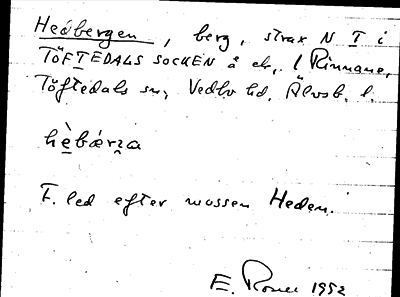 Hedbergen, berg, strax N I i
TÖFTEDALS SOCKEN å ek. l Rinnane,
Töftedals sn, Vedbo hd, Älvsb. l.
hèbærza
F. led efter mossen Heden.
E. 1952